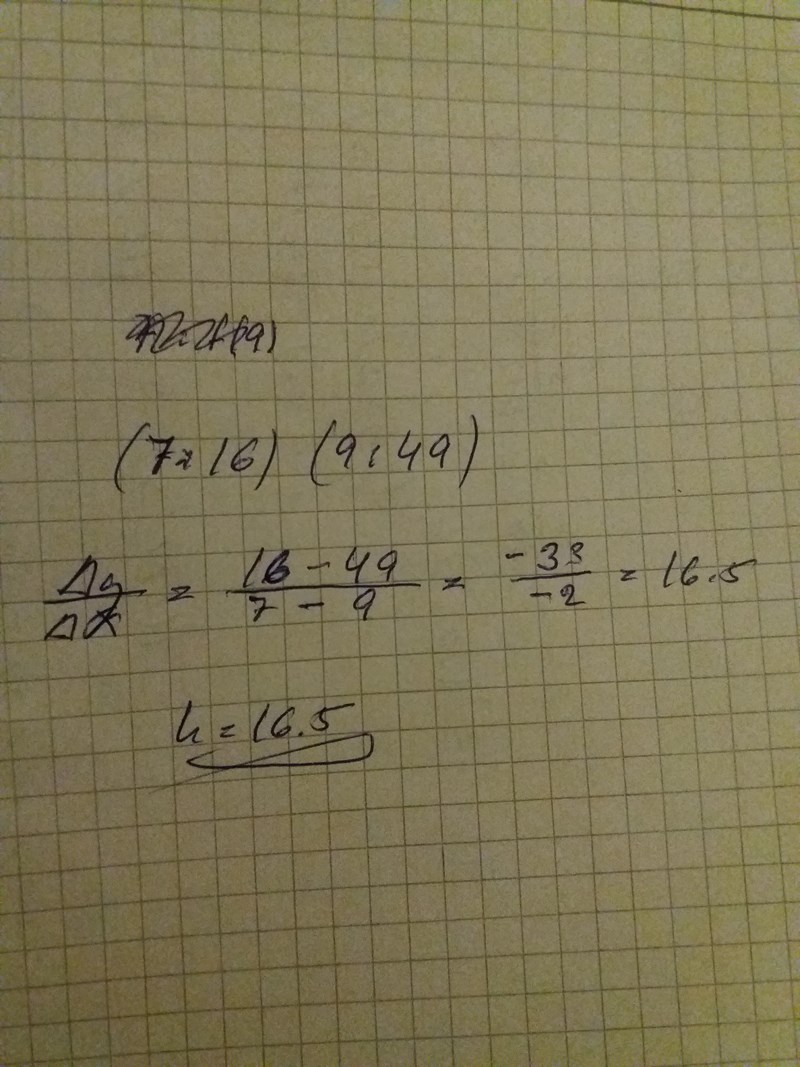 (7, 16) (9, 49)
Δy/Δx = 16 - 49/7 - 9 = -33/-2 = 16.5
k = 16.5